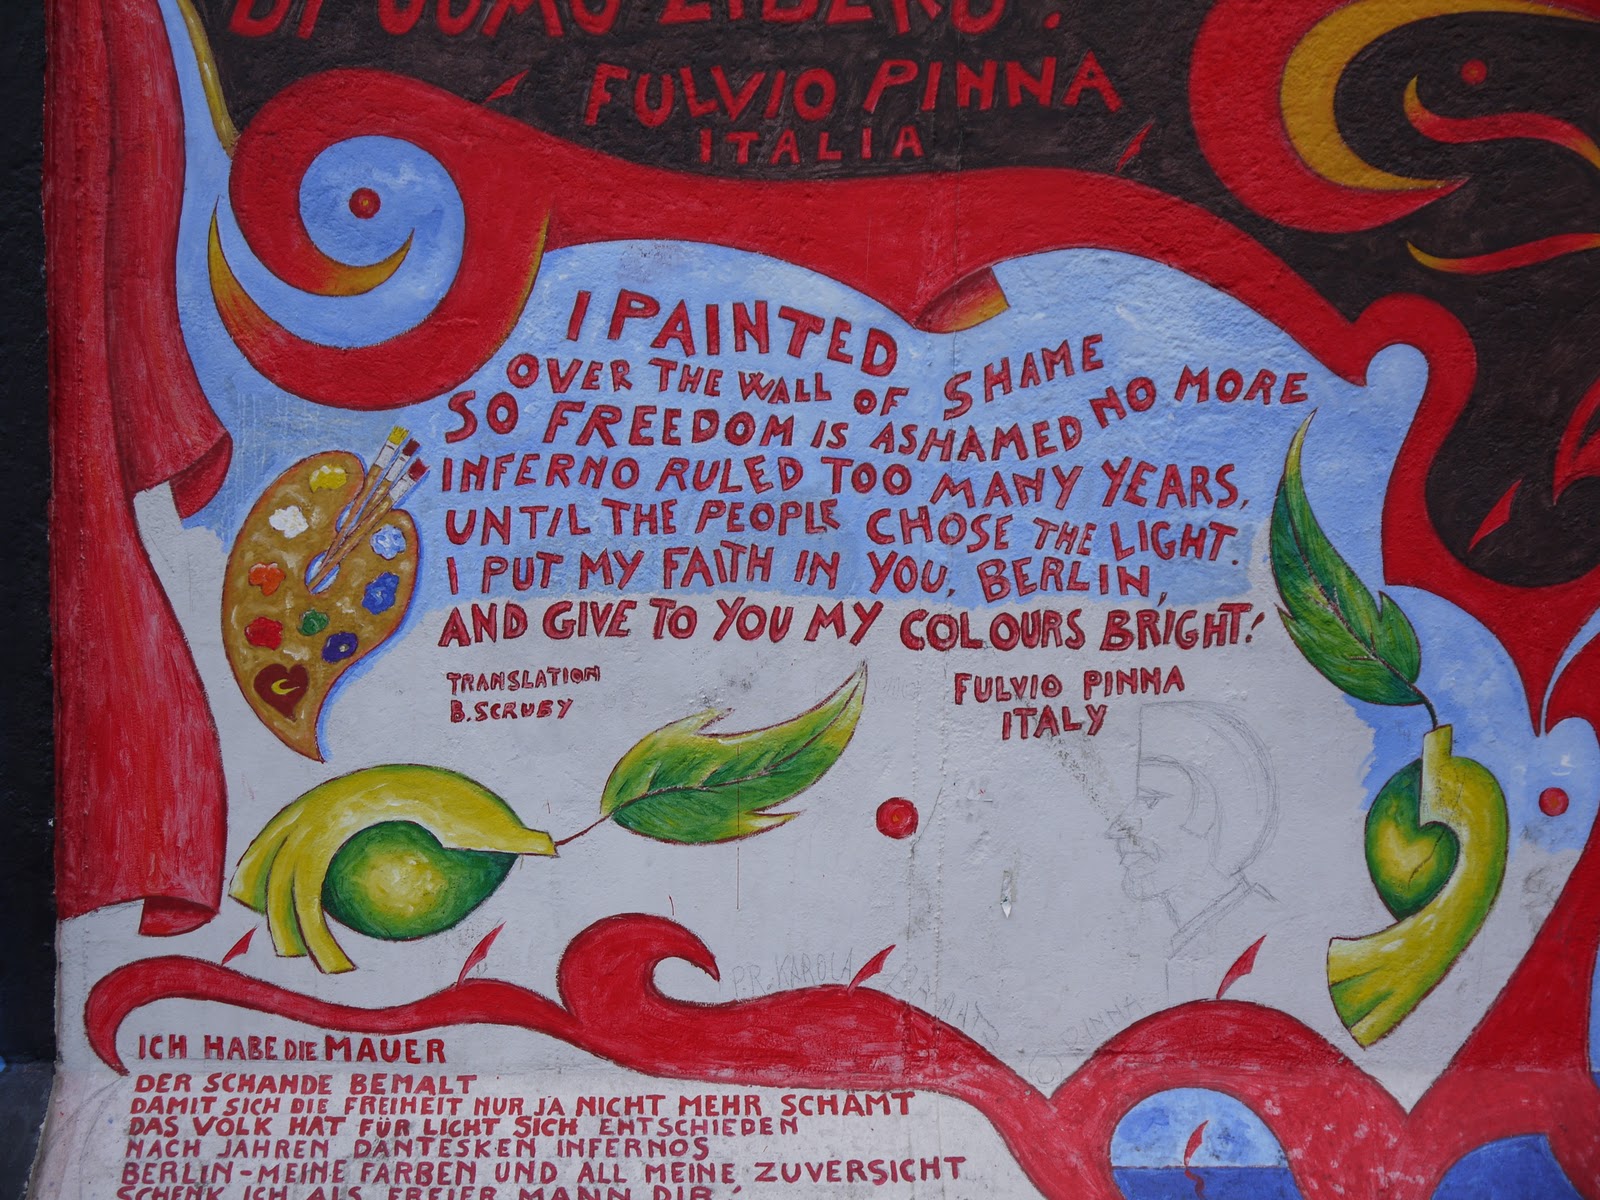 DI UOMO LIBERO!
FULVIO PINNA
ITALIA
I PAINTED
OVER THE WALL OF SHAME
SO FREEDOM IS ASHAMED NO MORE
INFERNO RULED TOO MANY YEARS,
UNTIL THE PEOPLE CHOSE THE LIGHT.
I PUT MY FAITH IN YOU, BERLIN,
AND GIVE TO YOU MY COLOURS BRIGHT!
TRANSLATION
B. SCRUBY
FULVIO PINNA
ITALY
P.R. KAROLA
PINNA
ICH HABE DIE MAUER
DER SCHANDE BEMALT
DAMIT SICH DIE FREIHEIT NUR JA NICHT MEHR SCHÄMT
DAS VOLK HAT FÜR LICHT SICH ENTSCHIEDEN
NACH JAHREN DANTESKEN INFERNOS
BERLIN-MEINE FARBEN UND ALL MEINE ZUVERSICHT
SCHENK ICH ALS FREIER MANN DIR,